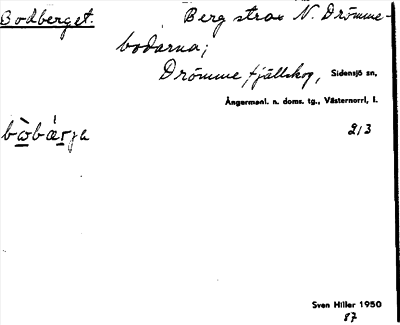 Bodberget. Berg strax N. Drömme-
bodarna;
Drömme fjällskog, Sidensjö sn,
Ångermanl. n. doms. tg., Västernorrl. l.
bòbárja 213
Sven Hiller 1950
87